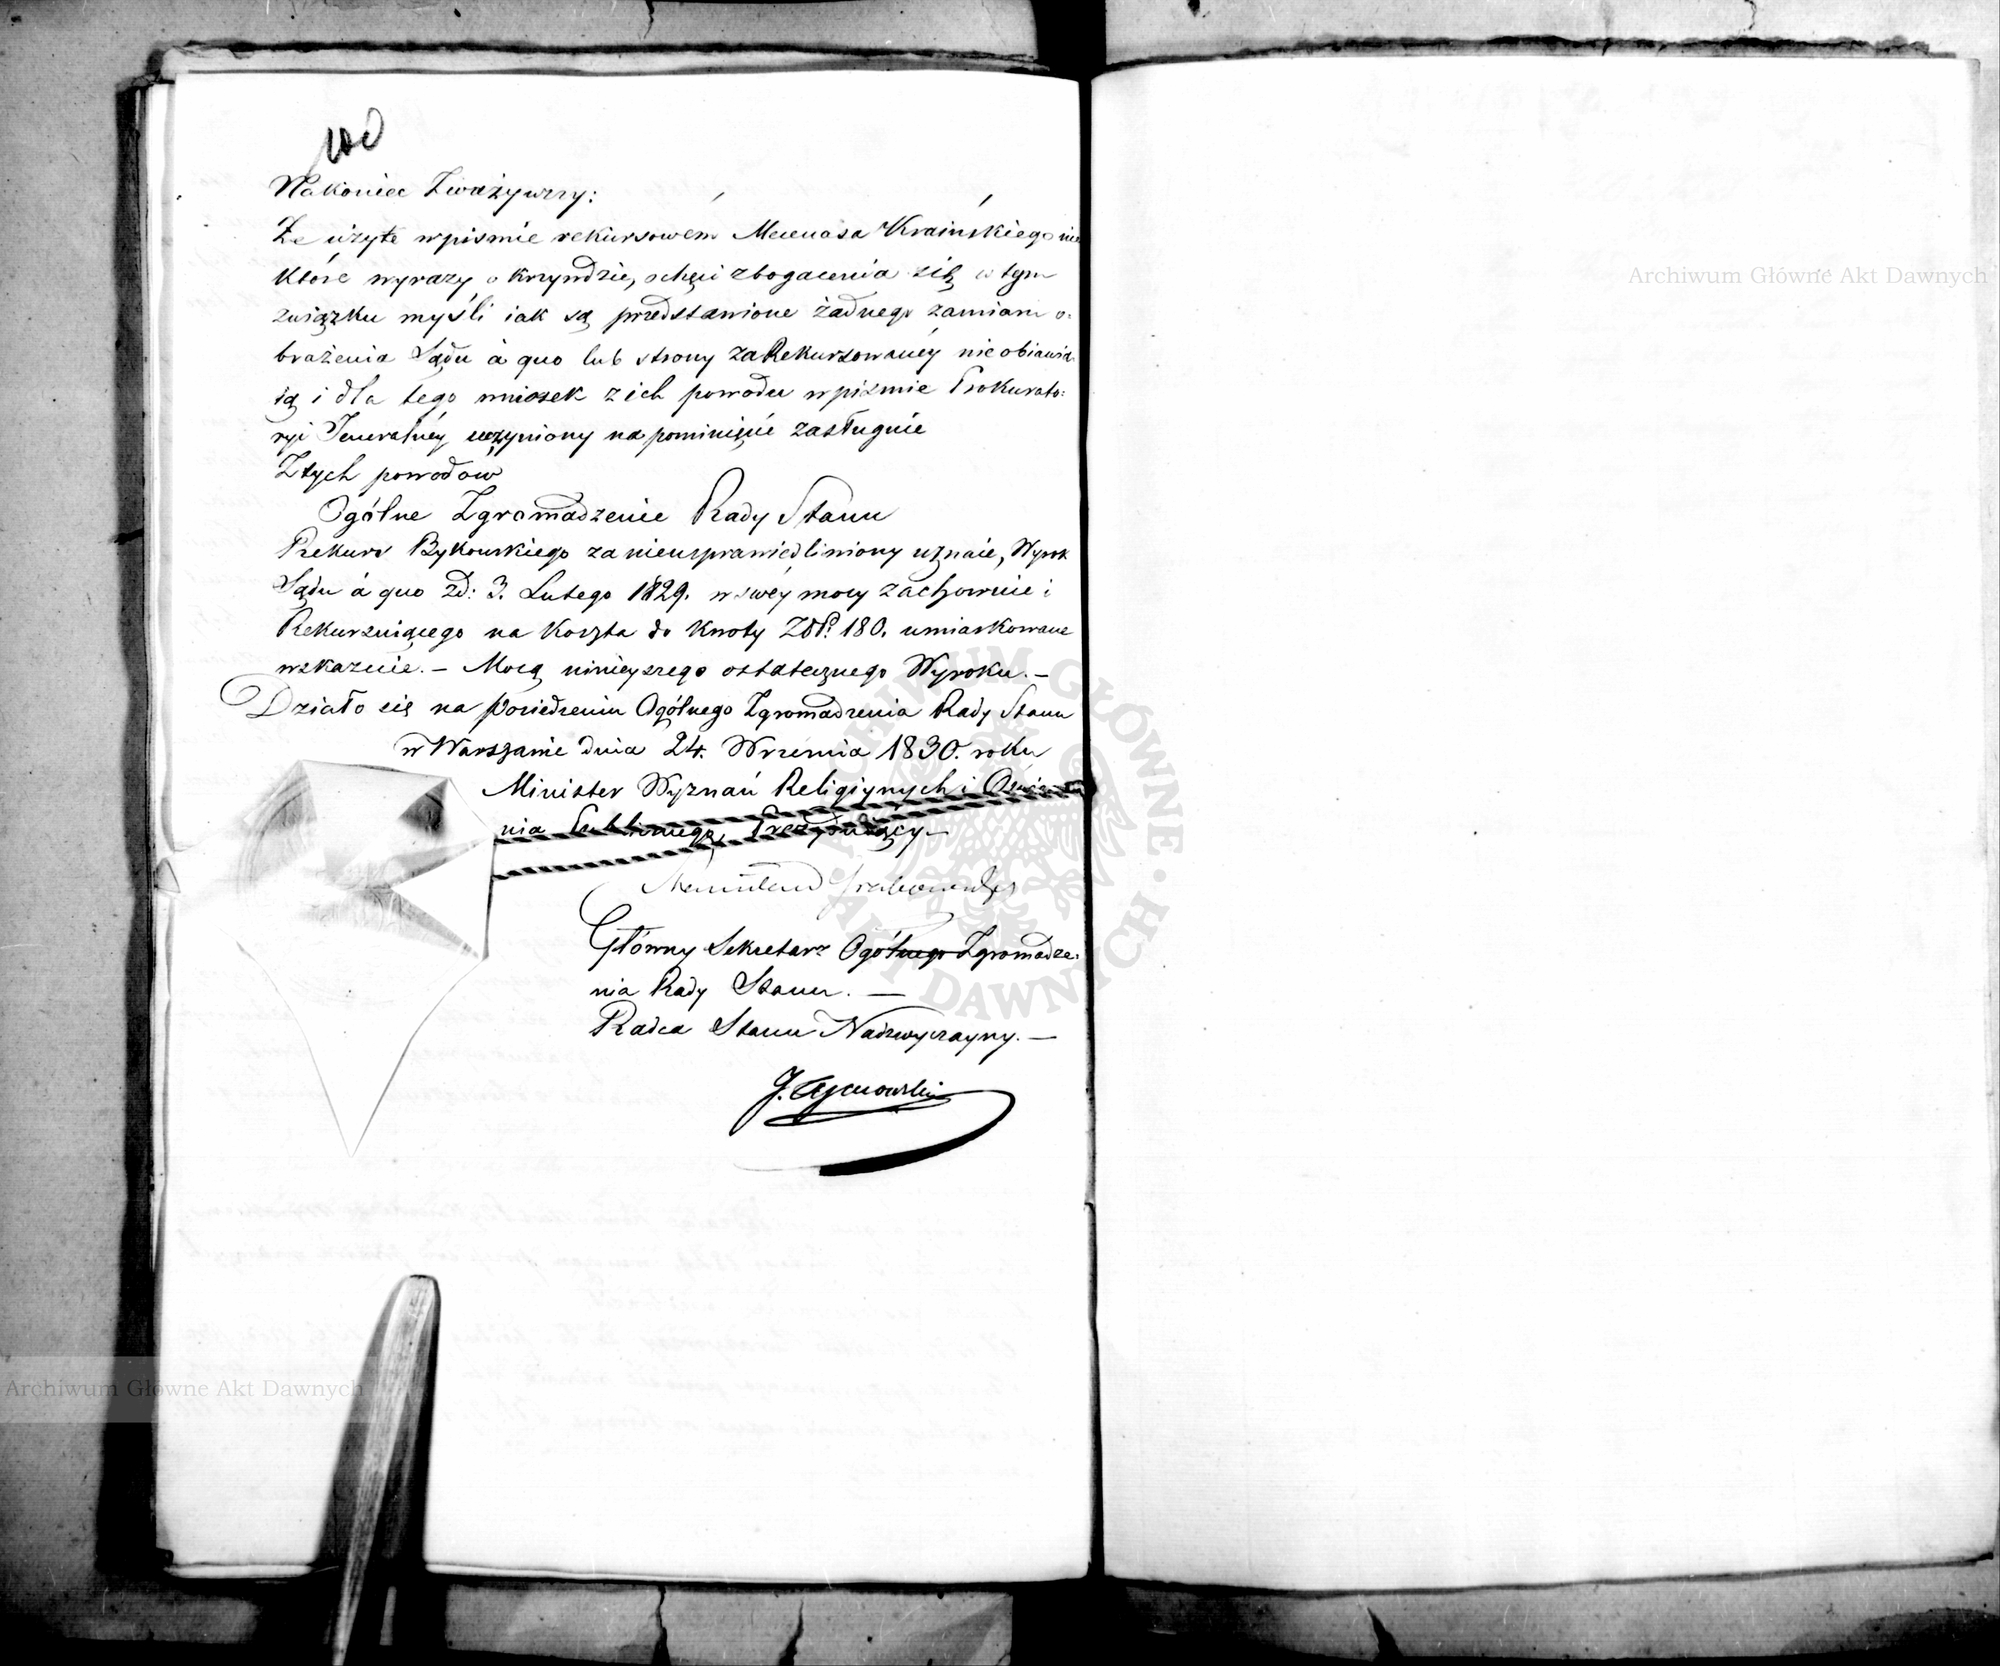 100
Nakoniec Zważywszy:
Że użyte w piśmie rekursowém Mecenasa Kraińskiego nie
które wyrazy o krzywdzie, o chęci zbogacenia się w tym
związku myśli iak są przedstawione żadnego zamiaru o=
brażenia Sądu à quo lub strony zaRekursowanéy nie obiawia
ią i dla tego wniosek z ich powodu w piśmie Prokurato=
ryi Jeneralnéy uczyniony na pominięcie zasługuie
Z tych powodów
Ogólne Zgromadzenie Rady Stanu
Rekurs Bykowskiego za nieusprawiedliwiony uznaie, Wyrok
Sądu à quo z d: 3. Lutego 1829. w swéy mocy zachowuie i
Rekursuiącego na koszta do kwoty ZłP. 180. umiarkowane
wskazuie. – Mocą ninieyszego ostatecznego Wyroku. –
Działo się na Posiedzeniu Ogólnego Zgromadzenia Rady Stanu
w Warszawie dnia 24. Września 1830. roku
Minister Wyznań Religiynych i Oświece
nia Publicznego, Prezyduiący –
Stanisław Grabowski
Główny Sekretarz Ogólnego Zgromadze=
nia Rady Stanu. —
Radca Stanu Nadzwyczayny. —
Archiwum Główne Akt Dawnych
Archiwum Główne Akt Dawnych
ARCHIWUM GŁÓWNE · AKT DAWNYCH ·